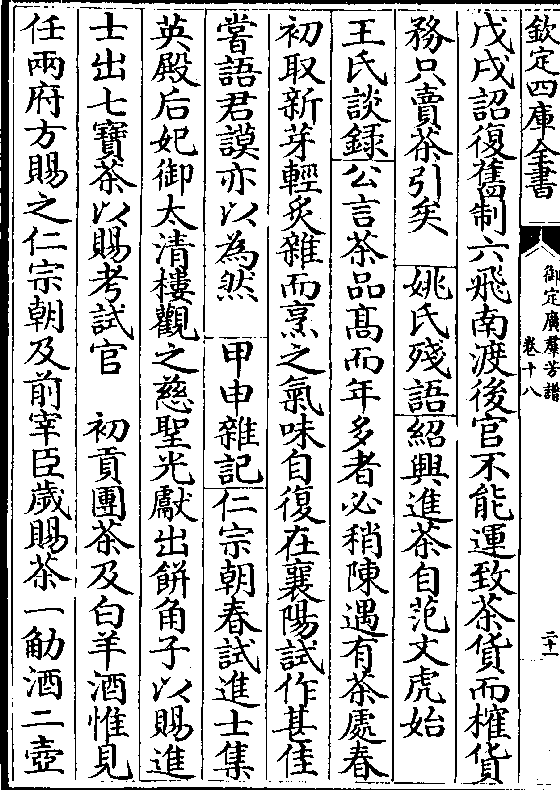 欽定四庫全書
御定廣羣芳譜
卷十八
二十一
戊戌詔復舊制六飛南渡後官不能運致茶貨而榷貨
務只賣茶引矣　姚氏殘語紹興進茶自范文虎始
王氏談録公言茶品髙而年多者必稍陳遇有茶處春
初取新芽輕炙雜而烹之氣味自復在襄陽試作甚佳
嘗語君謨亦以為然　甲申雜記仁宗朝春試進士集
英殿后妃御太清樓觀之慈聖光獻出餅角子以賜進
士出七寳茶以賜考試官　初貢團茶及白羊酒惟見
任兩府方賜之仁宗朝及前宰臣歲賜茶一觔酒二壺